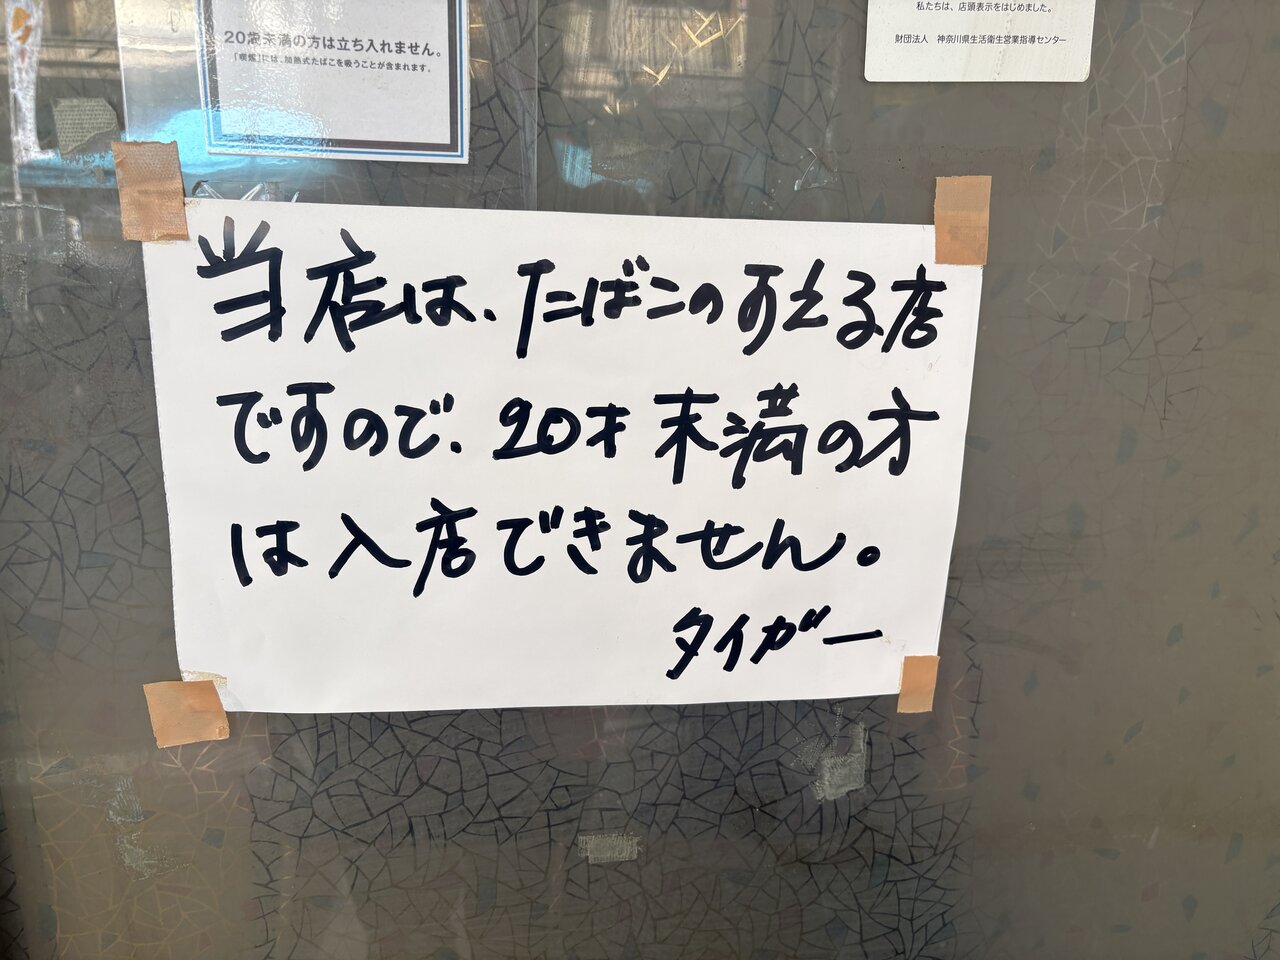 20歳未満の方は立ち入れません。
「喫煙」には、加熱式たばこを吸うことが含まれます。
私たちは、店頭表示をはじめました。
財団法人 神奈川県生活衛生営業指導センター
当店は、たばこのすえる店
ですので、20才末満の方
は入店できません。
タイガー